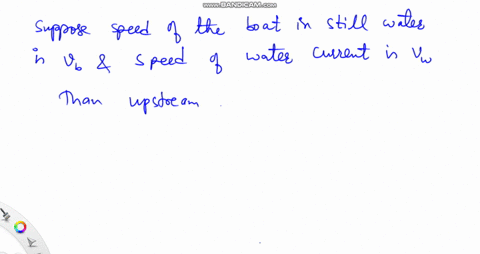 www.BANDICAM.com
Suppose speed of the boat in still water
is v_b & speed of water current is v_w
Than upstream